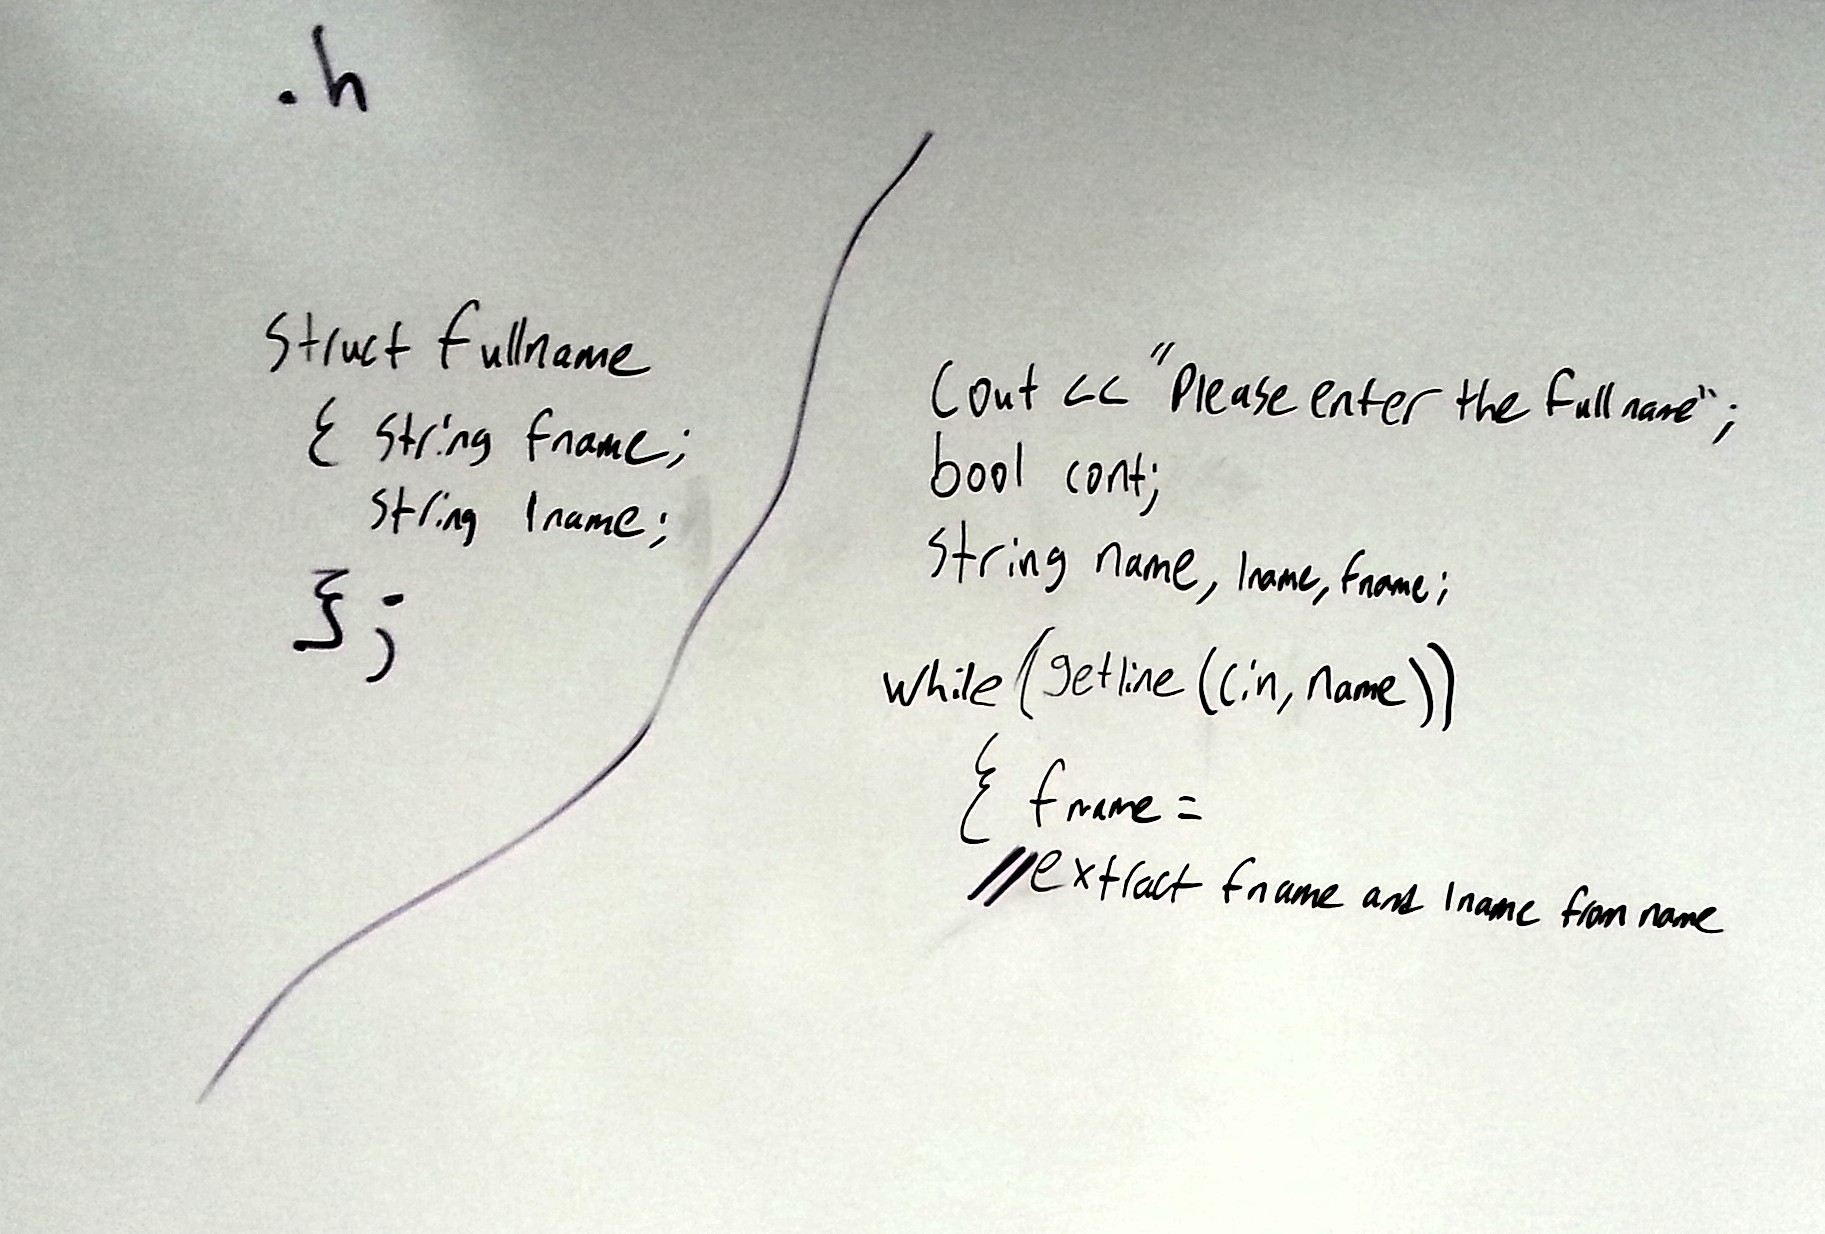 .h
struct fullname
{ string fname;
string lname;
};
Cout << "Please enter the full name";
bool cont;
string name, lname, fname;
while (getline (cin, name))
{ fname =
//extract fname and lname from name